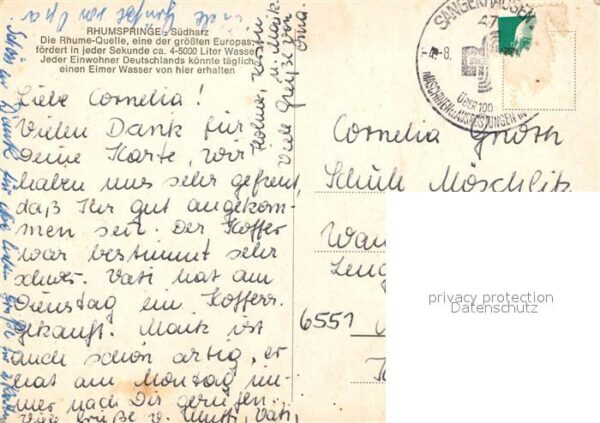 RHUMSPRINGE Südharz
Die Rhume-Quelle, eine der größten Europas,
fördert in jeder Sekunde ca. 4-5000 Liter Wasser
Jeder Einwohner Deutschlands könnte täglich
einen Eimer Wasser von hier erhalten
Liebe Cornelia!
Vielen Dank für
Deine Karte, wir
haben uns sehr gefreut,
daß Ihr gut angekom-
men seit. Der Koffer
war bestimmt sehr
schwer. Vati hat am
Dienstag ein Koffer
gekauft. Maik ist
auch schon artig, er
hat am Montag im-
mer nach Dir gerufen.
Viele Grüße v. Mutti, Vati,
u. Maik.
Viele Grüße von
Oma.
von Opa
SANGERHAUSEN
47
-8.
über 100
MASCHINEN-u. AUSRÜSTUNGEN
Cornelia
Schule Möschlitz
6551
privacy protection
Datenschutz